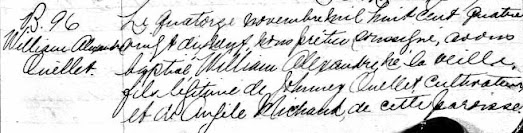 B. 96
William Alexandre
Ouellet.
Le quatorze novembre mil huit cent quatre
vingt dix, nous prêtre soussigné, avons
baptisé, William Alexandre, né la veille,
fils légitime de Johnney Ouellet, cultivateur,
et de Angèle Michaud, de cette paroisse.